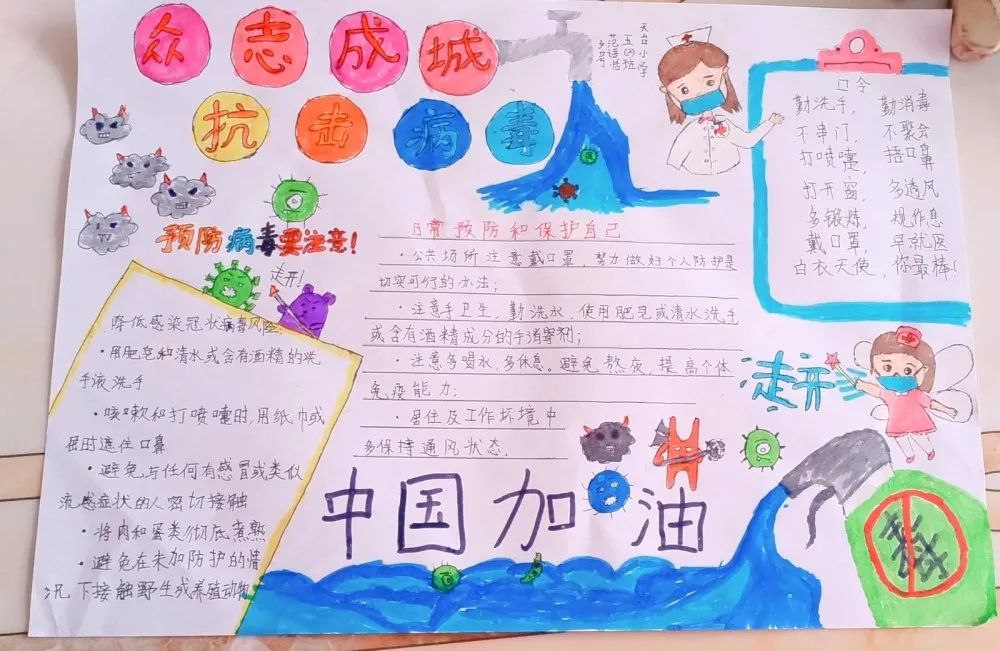 众志成城
抗击病毒
天台小学
五(2)班
口令
勤洗手， 勤消毒
不串门， 不聚会
打喷嚏， 捂口鼻
打开窗， 多透风
多锻炼， 规作息
戴口罩， 早就医
白衣天使，你最棒！
预防病毒要注意！
走开！
降低感染冠状病毒风险
·用肥皂和清水或含有酒精的洗
手液洗手
·咳嗽和打喷嚏时用纸巾或
屈肘遮住口鼻
·避免与任何有感冒或类似
流感症状的人密切接触
·将肉和蛋类彻底煮熟
·避免在未加防护的情
况下接触野生或养殖动物
日常预防和保护自己
·公共场所注意戴口罩，努力做好个人防护是
切实可行的办法；
·注意手卫生，勤洗水，使用肥皂或清水洗手
或含有酒精成分的手消毒剂；
·注意多喝水，多休息。避免熬夜，提高个体
免疫能力；
·居住及工作环境中
多保持通风状态．
走开
中国加油
毒